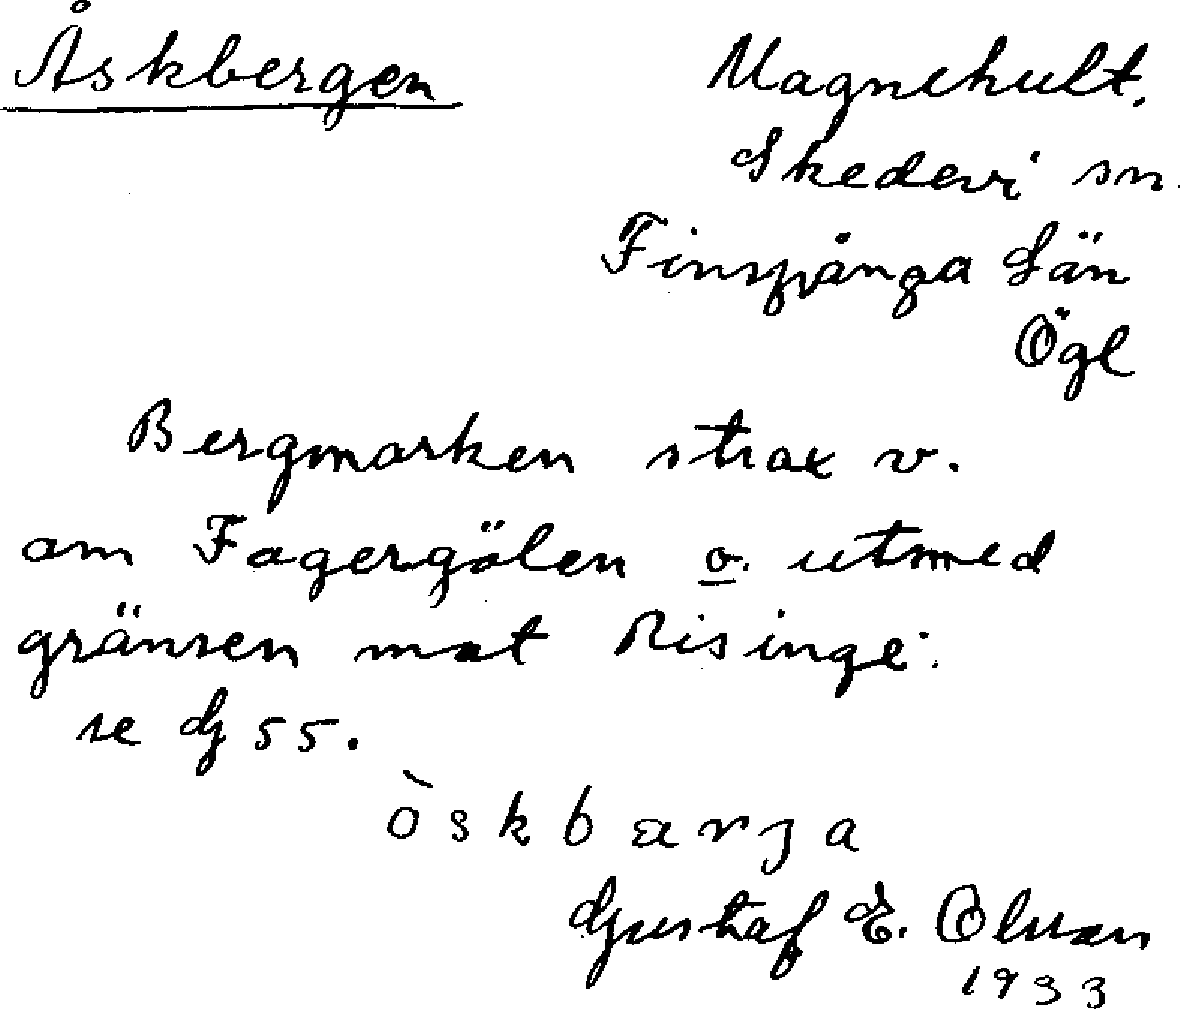 Åskbergen
Magnehult.
Skedevi sn.
Finspånga Län
Ögl
Bergmarken strax v.
om Fagergölen o. utmed
gränsen mot Risinge.
se G 55.
Gustaf E. Olsson
1933